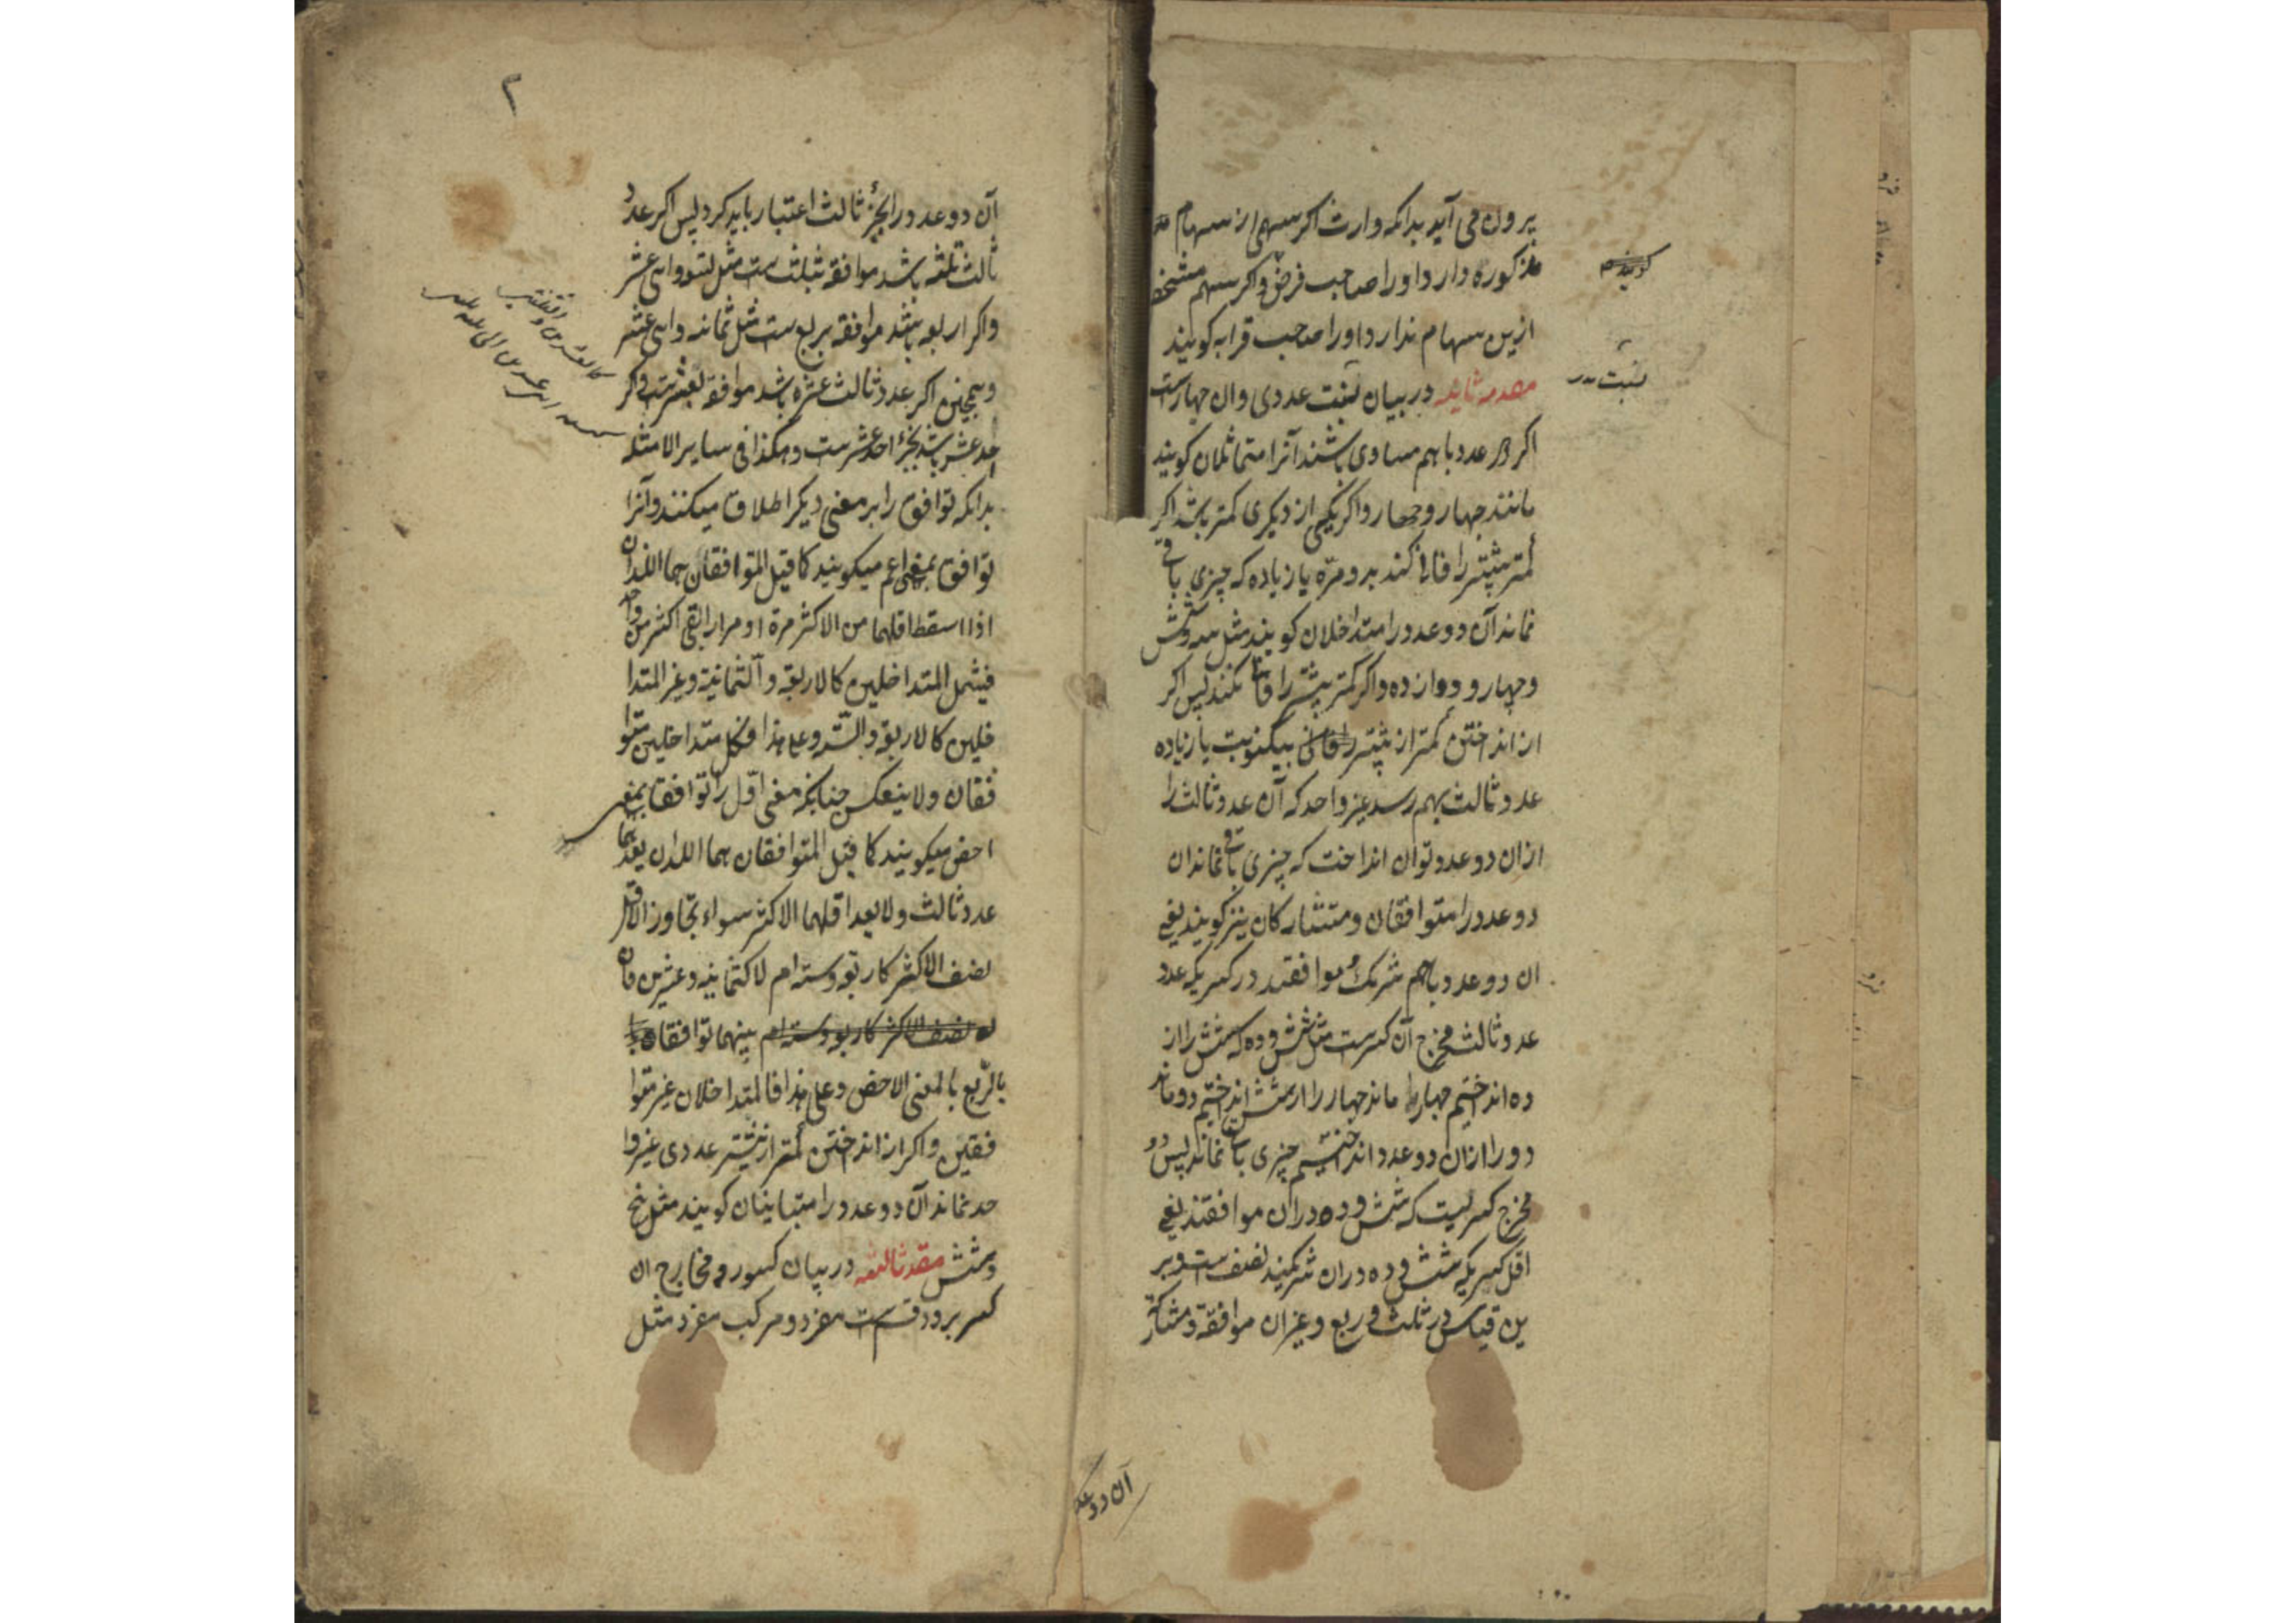 بیرون می آید بدانکه وارث اگر سهمی از سهام
مذکوره دارد اورا صاحب فرض و اگر سهم مشخص
ازین سهام ندارد اورا صاحب قرابه کویند
مقدمه ثانیه در بیان نسبت عددی وان چهارست
اکر دو عدد باهم مساوی باشند آنرا متماثلان کویند
مانند چهار و چهار واکر یکی از دیکری کمتر باشد اکر
کمتر بیشتر را فانی کند بدو مرّه یا زیاده که چیزی باقی
نماند آن دو عدد را متداخلان کویند مثل سه و شش
وچهار و دوازده واکر کمتر بیشتر را فانی نکند پس اکر
از انداختن کمتر از بیشتر بیکنوبت یا زیاده
عدد ثالث بهم رسد غیر واحد که آن عدد ثالث را
ازان دو عدد توان انداخت که چیزی باقی نماند ان
دو عدد را متوافقان و متشارکان نیز کویند یعنی
ان دو عدد باهم شریک و موافقند در کسریکه عدد
عدد ثالث مخرج آن کسرست مثل شش و ده که شش را از
ده انداختیم چهار ماند چهار را از شش انداختیم دو ماند
دو را ازان دو عدد انداختیم چیزی باقی نماند پس دو
مخرج کسریست که شش و ده دران موافقند یعنی
اقل کسریکه شش و ده دران شریکند نصف ست وبر
ین قیاس در ثلث و ربع و غیر ان موافقة و مشارکة
کویند
نسبت
آن دو عدد
۲
آن دو عدد را بجزء ثالث اعتبار باید کرد پس اکر عدد
ثالث ثلثه باشد موافقه بثلث ست مثل تسع واثنی عشر
واکر اربعه باشد موافقه بربع ست مثل ثمانه واثنی عشر
وهمچنین اکر عدد ثالث عشره باشد موافقه بعشرست واکر
احد عشر باشد بجزء احد عشرست وهکذا فی سایر الامثله
بدانکه توافق را بر معنی دیکر اطلاق میکنند وآنرا
توافق بمعنی اعم میکویند کما قیل المتوافقان هما اللذان
اذا اسقط اقلهما من الاکثر مرة او مرارا بقی اکثر من واحد
فیشمل المتداخلین کالاربعة والثمانیة وغیر المتدا
خلین کالاربعة والستة وعلی هذا فکل متداخلین متوا
فقان ولا ینعکس چنانکه معنی اوّل را توافق بمعنی
اخص میکویند کما قیل المتوافقان هما اللذان یعدهما
عدد ثالث ولا یعد اقلهما الاکثر سواء تجاوز الاقل
نصف الاکثر کاربعة وستة ام لا کثمانیة وعشرین فان
نصف الاکثر کاربعة وستة ام بینهما توافقا
بالرّبع بالمعنی الاخص وعلی هذا فالمتداخلان غیر متوا
فقین واکر از انداختن کمتر از بیشتر عددی غیر وا
حد نماند آن دو عدد را متباینان کویند مثل پنج
وشش مقدمه ثالثه در بیان کسور و مخارج ان
کسر بر دو قسم ست مفرد و مرکب مفرد مثل